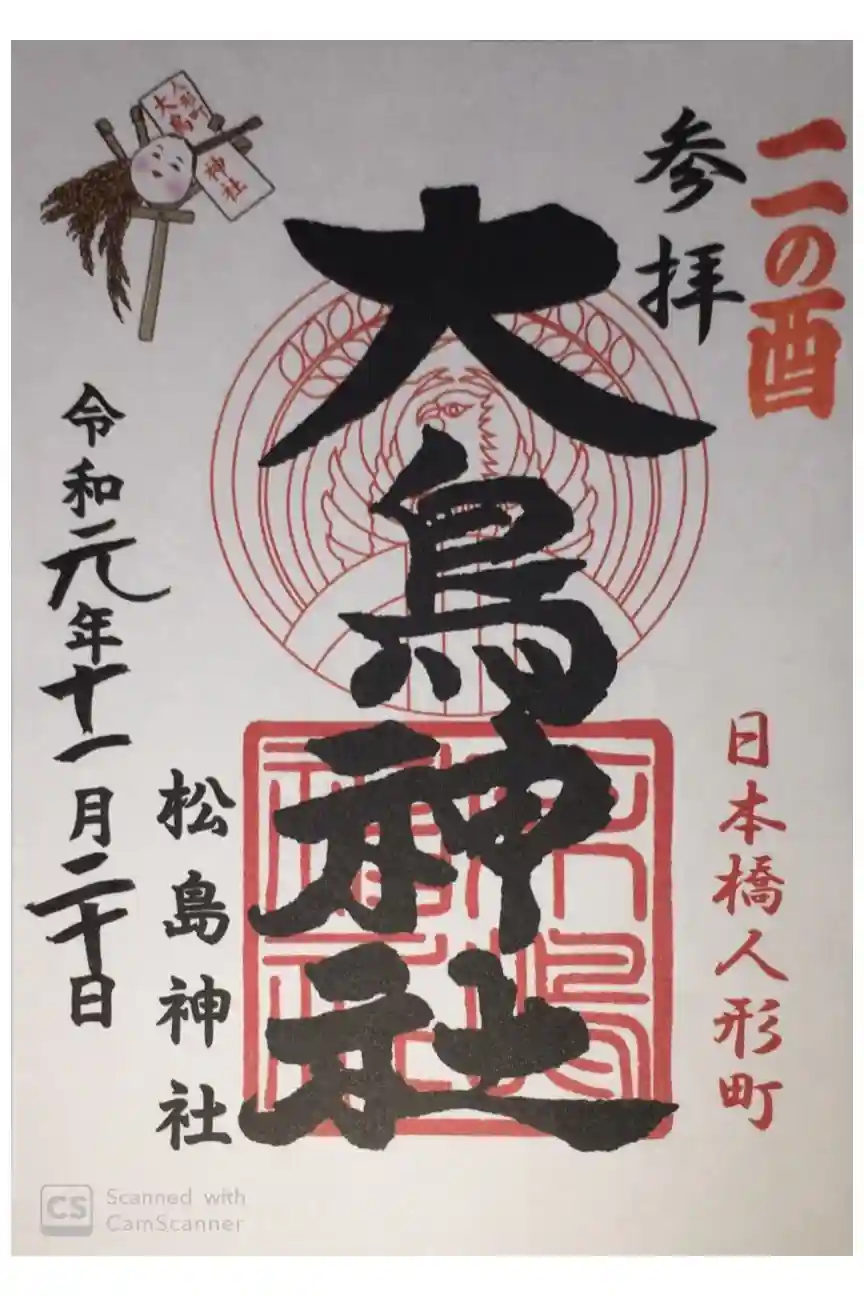 二の酉
参拝
日本橋人形町
大鳥神社
松島神社
令和元年十一月二十日
人形町
大鳥
神社
Scanned with
CamScanner
CS